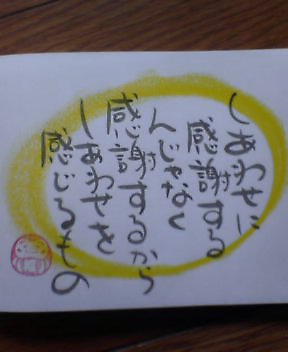 しあわせに
感謝する
んじゃなく
感謝するから
しあわせを
感じるもの